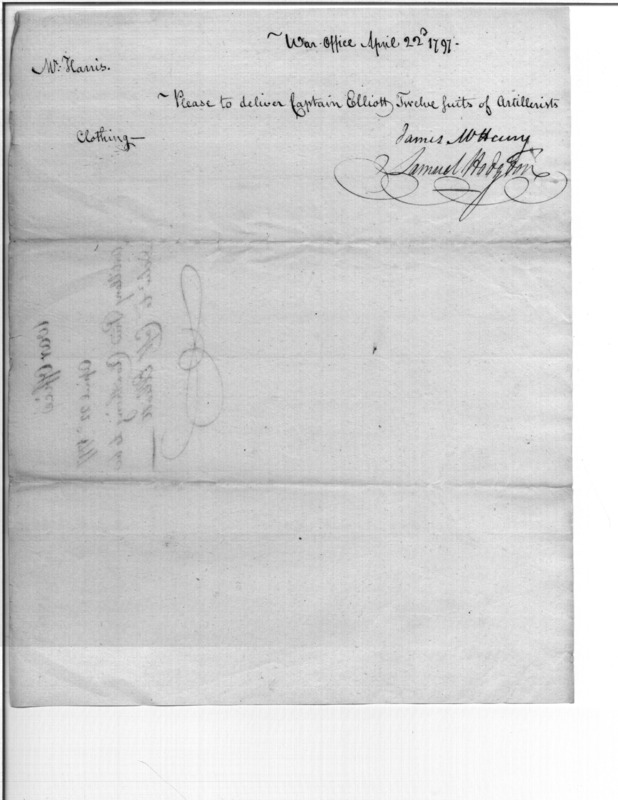 ~War Office April 22d 1797.
Mr. Harris.
~Please to deliver Captain Elliott, Twelve suits of Artillerists
Clothing—
James McHenry
Samuel Hodgdon
War Office
April 22d 1797